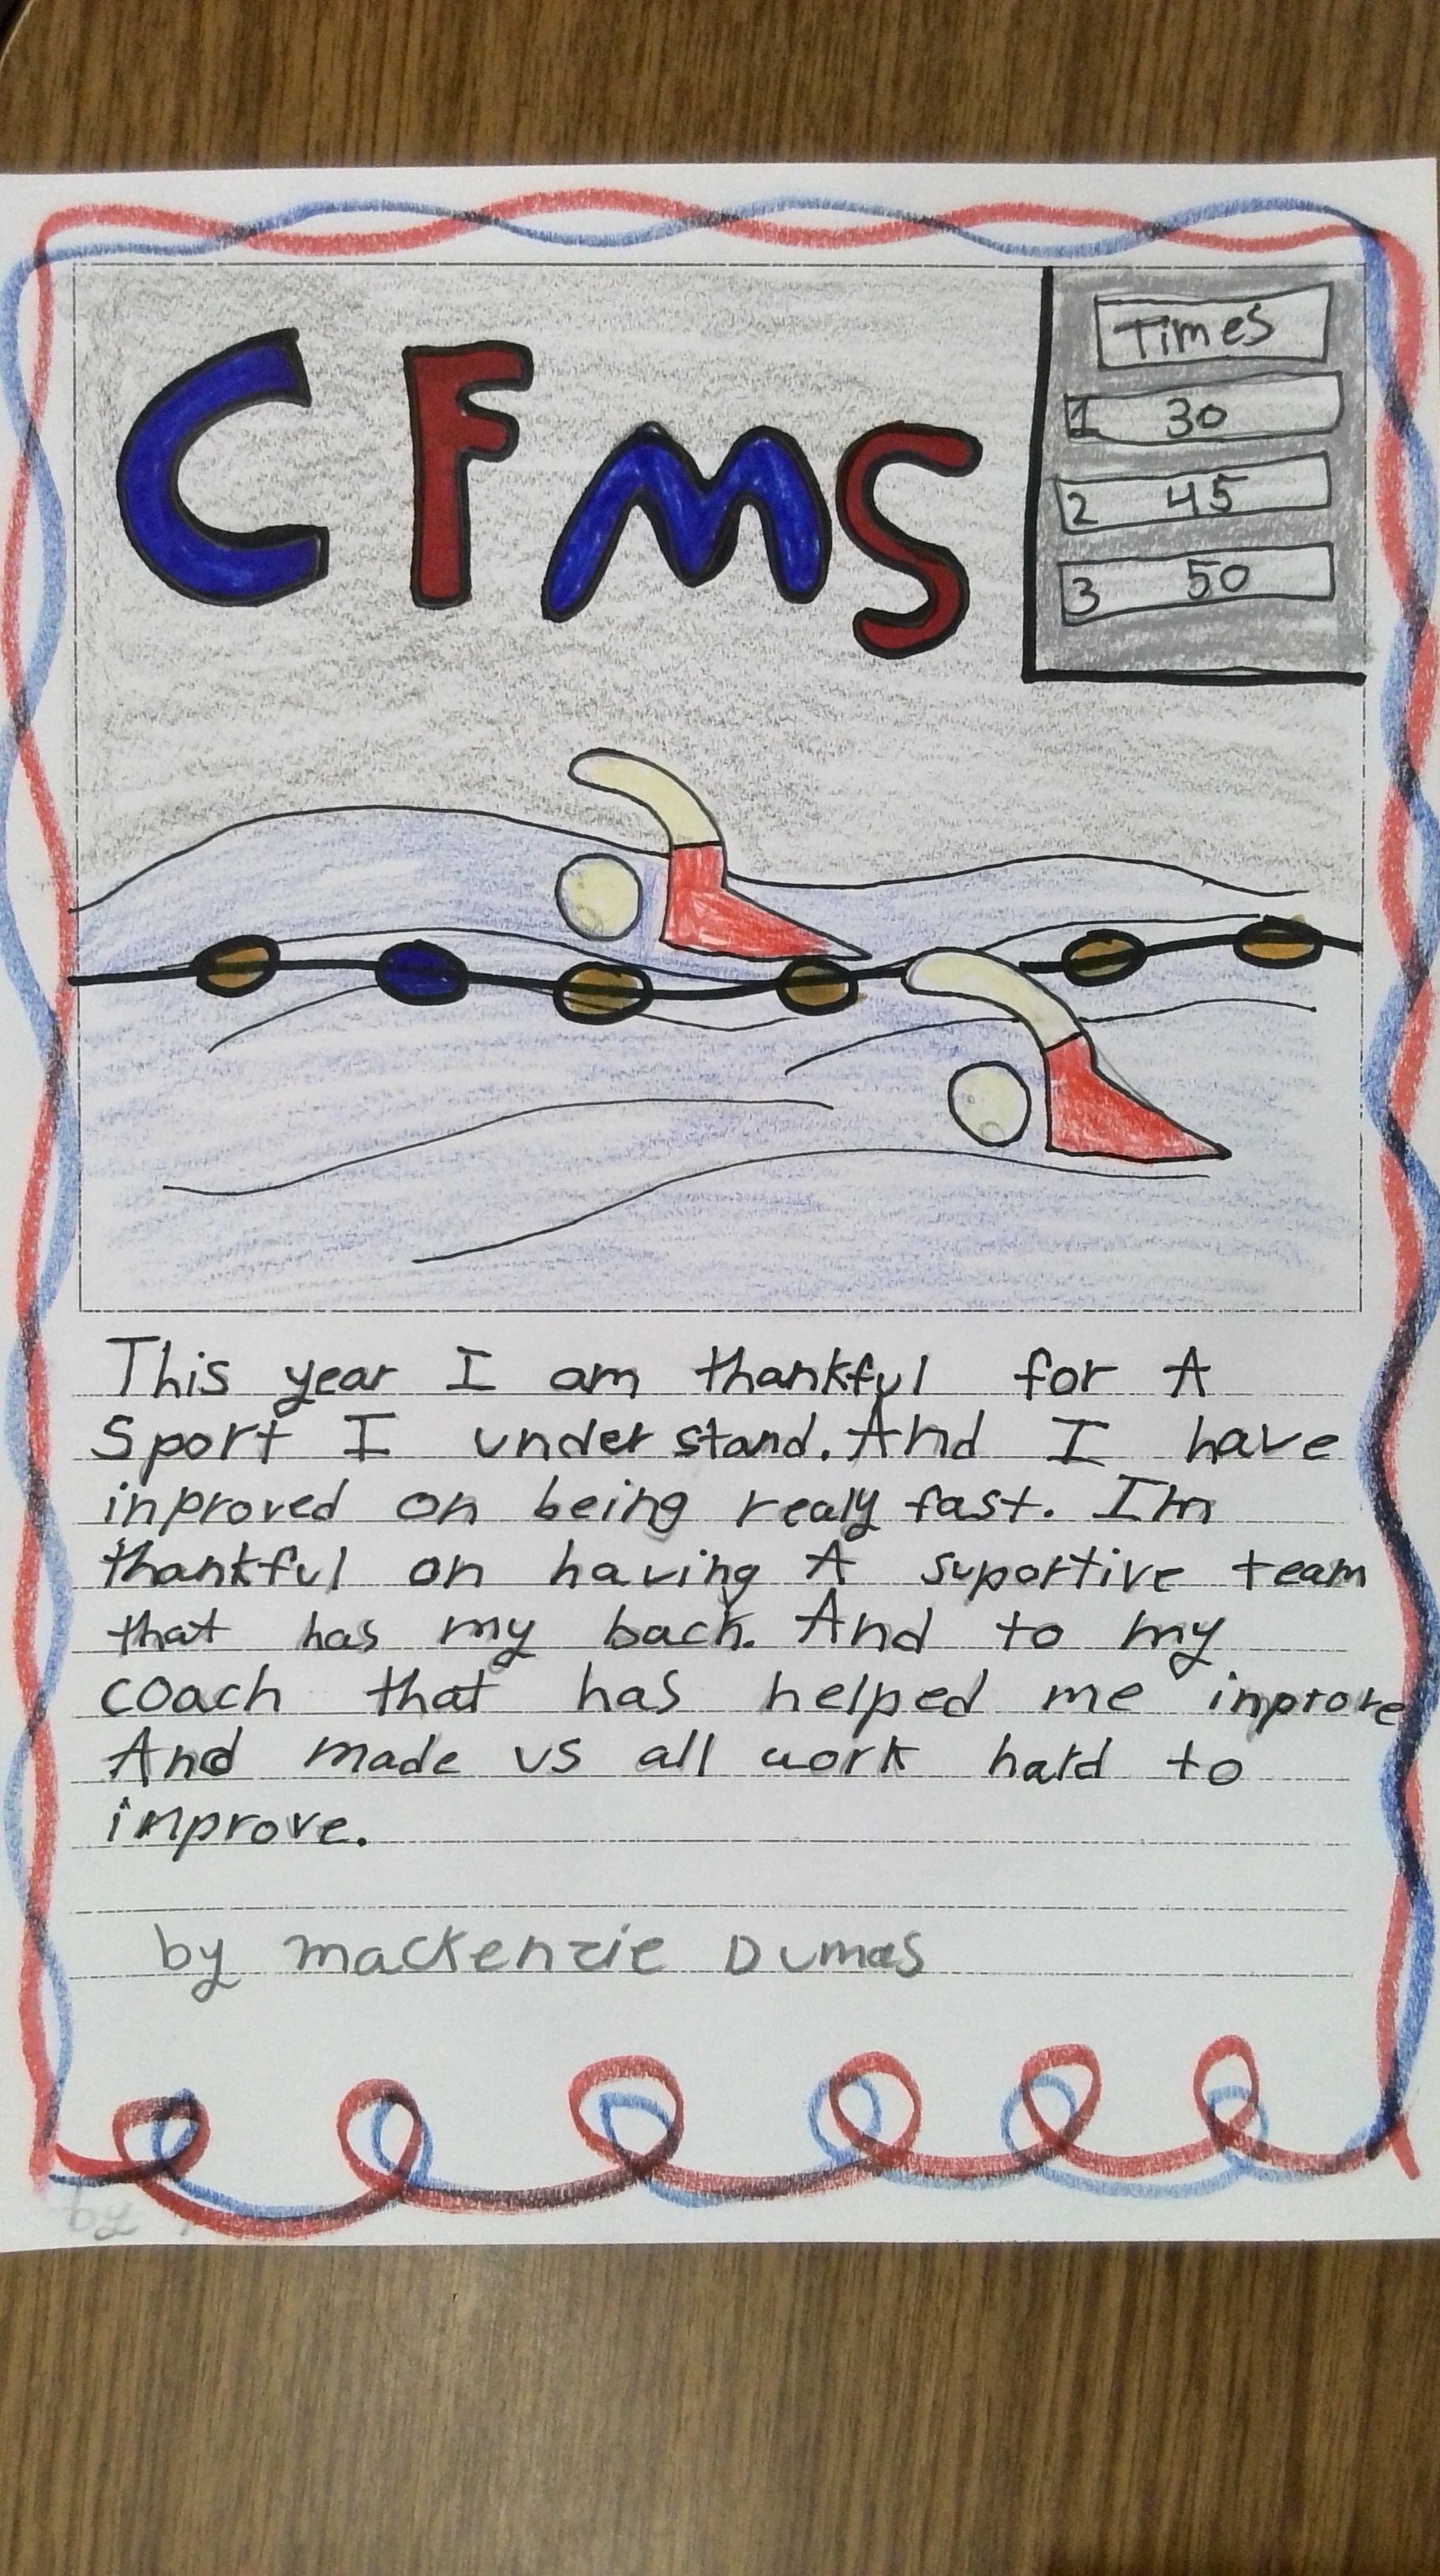 CFMS
Times
1 30
2 45
3 50
This year I am thankful for A
Sport I understand. And I have
inproved on being realy fast. Im
thankful on having A suportive team
that has my back. And to my
coach that has helped me inprove
And made us all work hard to
improve.
by mackenzie Dumas
by